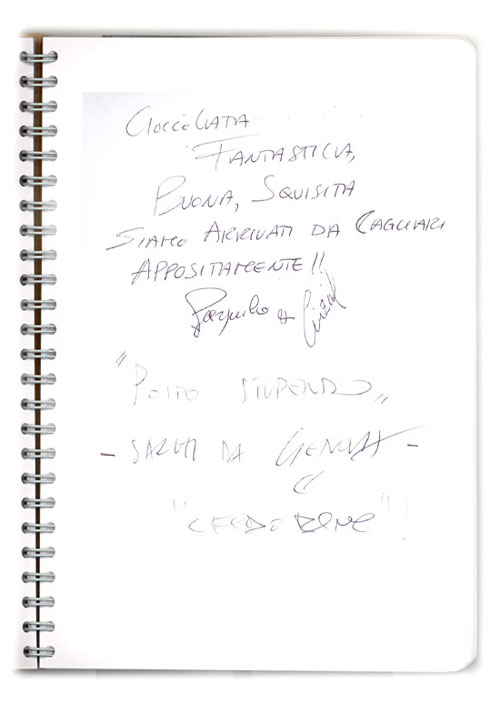 CIOCCOLATA
FANTASTICA,
BUONA, SQUISITA
SIAMO ARRIVATI DA CAGLIARI
APPOSITAMENTE!!
&
"POSTO STUPENDO"
- SALUTI DA GENOVA -
BENE"!!